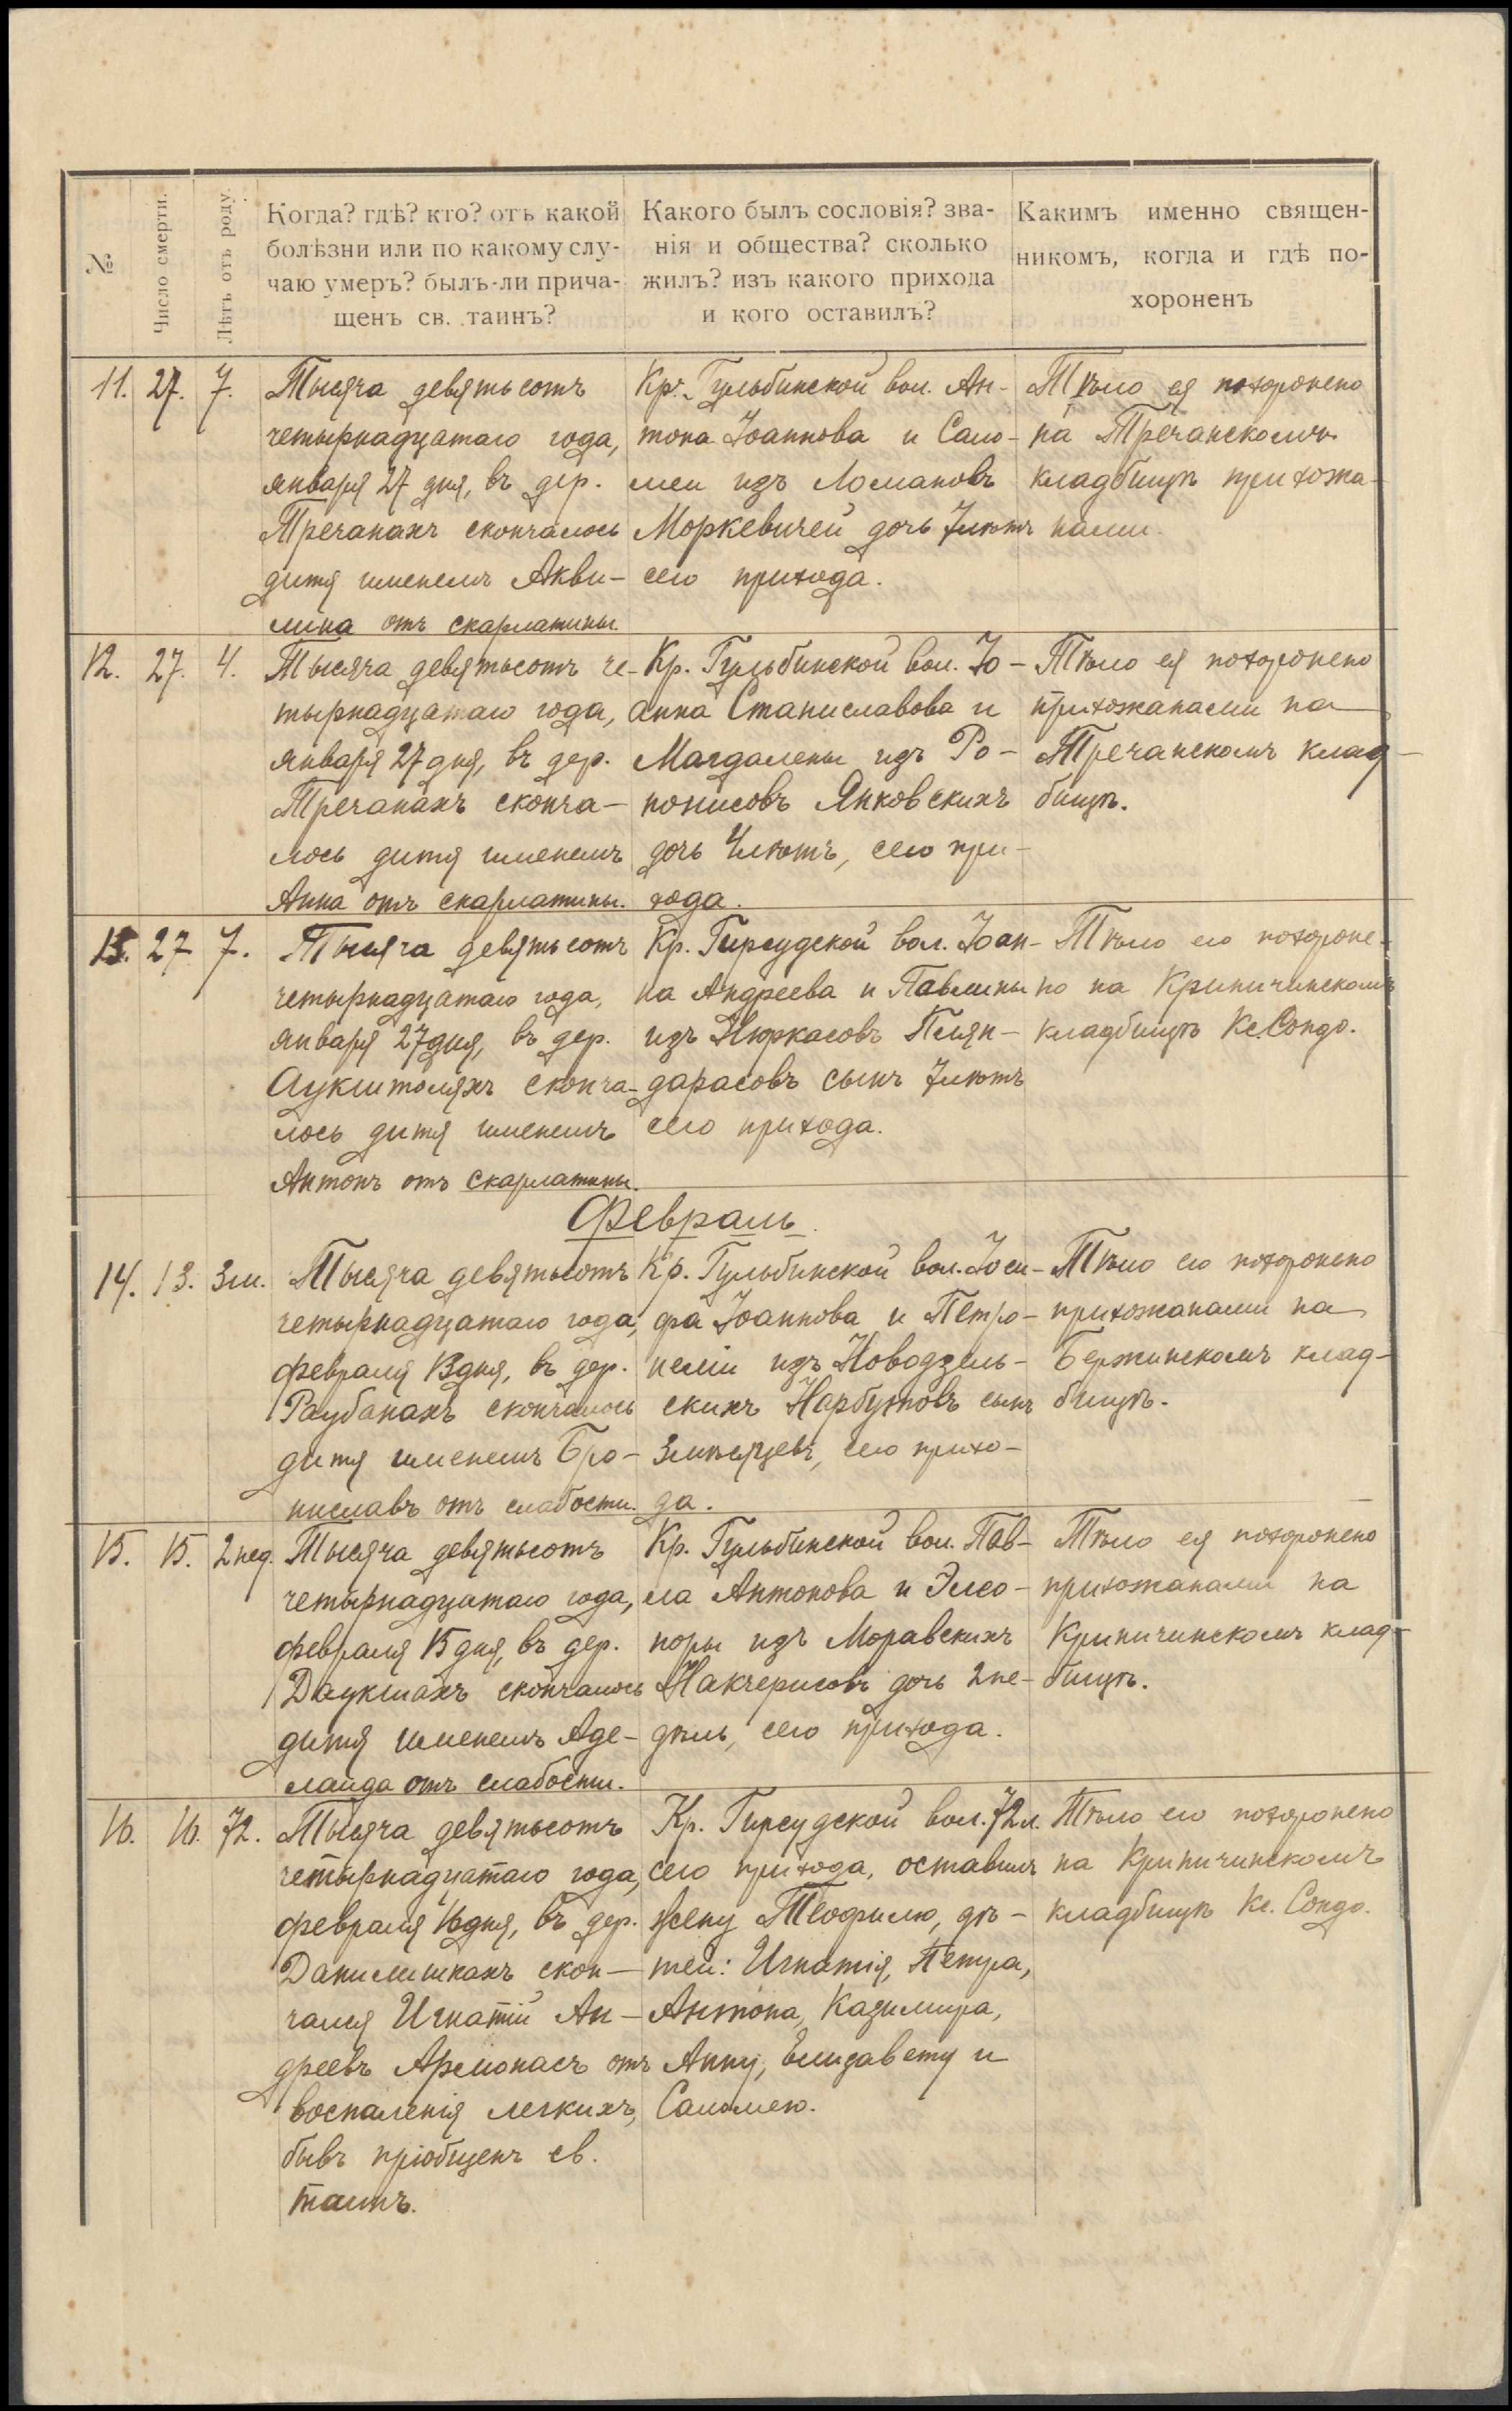 №
Число смерти.
Лѣтъ отъ роду.
Когда? гдѣ? кто? отъ какой
болѣзни или по какому слу-
чаю умеръ? былъ-ли прича-
щенъ св. таинъ?
Какого былъ сословія? зва-
нія и общества? сколько
жилъ? изъ какого прихода
и кого оставилъ?
Каимъ именно священ-
никомъ, когда и гдѣ по-
хороненъ
11. 27. 7.
Тысяча девятьсотъ
четырнадцатаго года,
января 27 дня, въ дер.
Тречанахъ скончалось
дитя именемъ Акви-
лина отъ скарлатины.
Кр. Гульбинской вол. Ан-
тона Іоаннова и Сало-
меи изъ Ломановъ
Моркевичей дочь 7 лѣтъ
сего прихода.
Тѣло ея похоронено
на Тречанскомъ
кладбищѣ прихожа-
нами.
12. 27. 4.
Тысяча девятьсотъ че-
тырнадцатаго года,
января 27 дня, въ дер.
Тречанахъ сконча-
лось дитя именемъ
Анна отъ скарлатины.
Кр. Гульбинской вол. Іо-
анна Станиславова и
Магдалены изъ Ро-
понисовъ Янковскихъ
дочь 4 лѣтъ, сего при-
хода.
Тѣло ея похоронено
прихожанами на
Тречанскомъ клад-
бищѣ.
13. 27 7.
Тысяча девятьсотъ
четырнадцатаго года,
января 27 дня, въ дер.
Аукштоляхъ сконча-
лось дитя именемъ
Антонъ отъ скарлатины.
Кр. Гирсудской вол. Іоан-
на Андреева и Павлины
изъ Нюркасовъ Гелян-
дарасовъ сынъ 7 лѣтъ
сего прихода.
Тѣло его похороне-
но на Криничинскомъ
кладбищѣ Кс. Сондо.
Февраль.
14. 13. 3 м.
Тысяча девятьсотъ
четырнадцатаго года,
февраля 13 дня, въ дер.
Раубанахъ скончалось
дитя именемъ Бро-
ниславъ отъ слабости.
Кр. Гульбинской вол. Іоси-
фа Іоаннова и Петро-
неліи изъ Новодзель-
скихъ Нарбутовъ сынъ
3 мѣсяцевъ, сего прихо-
да.
Тѣло его похоронено
прихожанами на
Бержинскомъ клад-
бищѣ.
15. 15. 2 нед.
Тысяча девятьсотъ
четырнадцатаго года,
февраля 15 дня, въ дер.
Даукшахъ скончалось
дитя именемъ Аде-
лаида отъ слабости.
Кр. Гульбинской вол. Пав-
ла Антонова и Элео-
норы изъ Моравскихъ
Накчерисовъ дочь 2 не-
дѣль, сего прихода.
Тѣло ея похоронено
прихожанами на
Криничинскомъ клад-
бищѣ.
16. 16. 72.
Тысяча девятьсотъ
четырнадцатаго года,
февраля 16 дня, въ дер.
Данилишкахъ скон-
чался Игнатій Ан-
дреевъ Армонасъ отъ
воспаленія легкихъ,
бывъ пріобщенъ св.
таинъ.
Кр. Гирсудской вол. 72 л.
сего прихода, оставилъ
жену Теофилю, дѣ-
тей: Игнатія, Петра,
Антона, Казимира,
Анну, Елизавету и
Саломею.
Тѣло его похоронено
на Криничинскомъ
кладбищѣ Кс. Сондо.